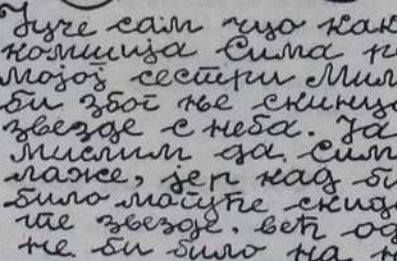 Јуче сам чуо как
комшија Сима р
мојој сестри Мил
би због ње скинуо
звезде с неба. Ја
мислим да Сим
лаже, јер кад би
било могуће скид
те звезде, већ од
не би било на н